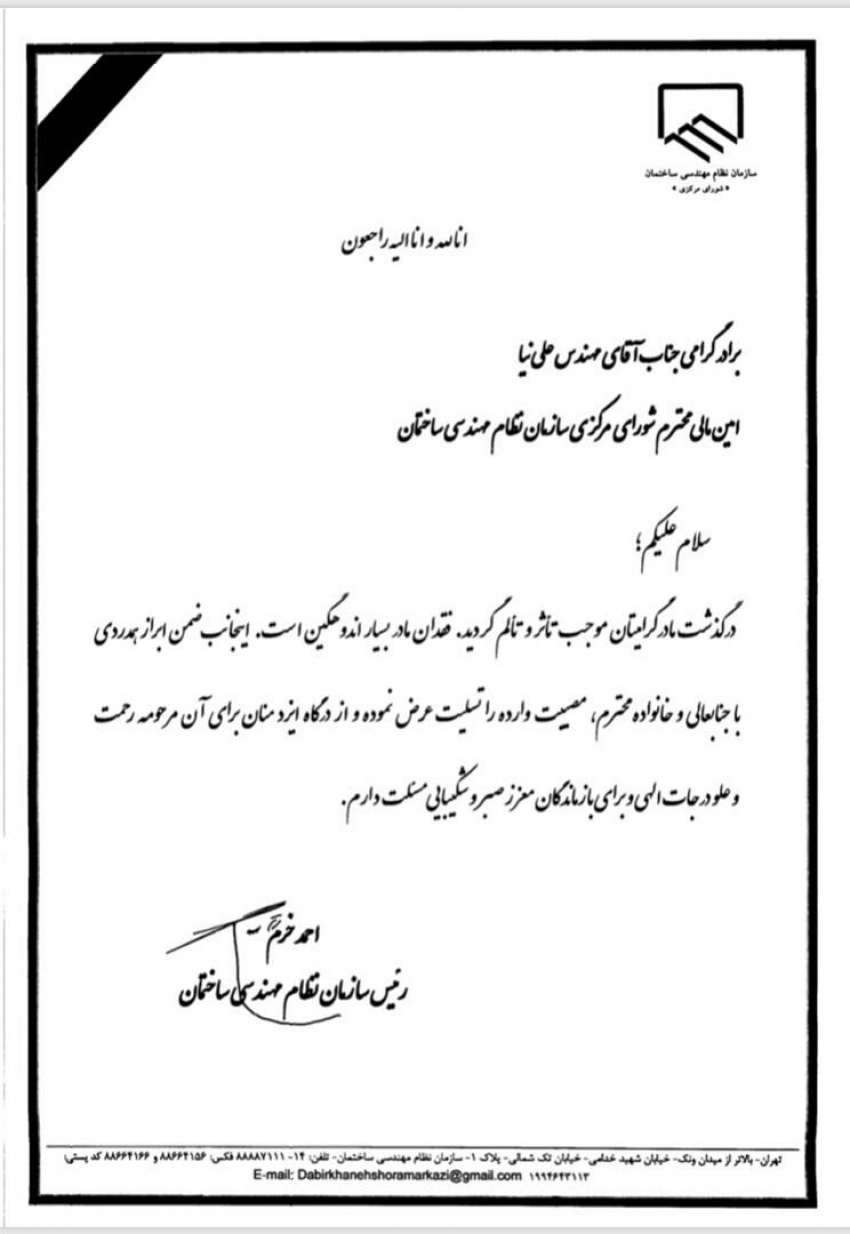 سازمان نظام مهندسی ساختمان
« شورای مرکزی »
انا لله و انا الیه راجعون
برادر گرامی جناب آقای مهندس علی نیا
امین مالی محترم شورای مرکزی سازمان نظام مهندسی ساختمان
سلام علیکم؛
درگذشت مادر گرامیتان موجب تأثر و تألم گردید. فقدان مادر بسیار اندوهگین است. اینجانب ضمن ابراز همدردی
با جنابعالی و خانواده محترم، مصیبت وارده را تسلیت عرض نموده و از درگاه ایزد منان برای آن مرحومه رحمت
و علو درجات الهی و برای بازماندگان معزز صبر و شکیبایی مسئلت دارم.
احمد خرم
رئیس سازمان نظام مهندسی ساختمان
تهران- بالاتر از میدان ونک- خیابان شهید خدامی- خیابان تک شمالی- پلاک ۱- سازمان نظام مهندسی ساختمان- تلفن: ۱۴- ۸۸۸۸۷۱۱۱ فکس: ۸۸۶۶۴۱۵۶ و ۸۸۶۶۴۱۶۶ کد پستی:
E-mail: Dabirkhanehshoramarkazi@gmail.com ۱۹۹۴۶۴۳۱۱۳